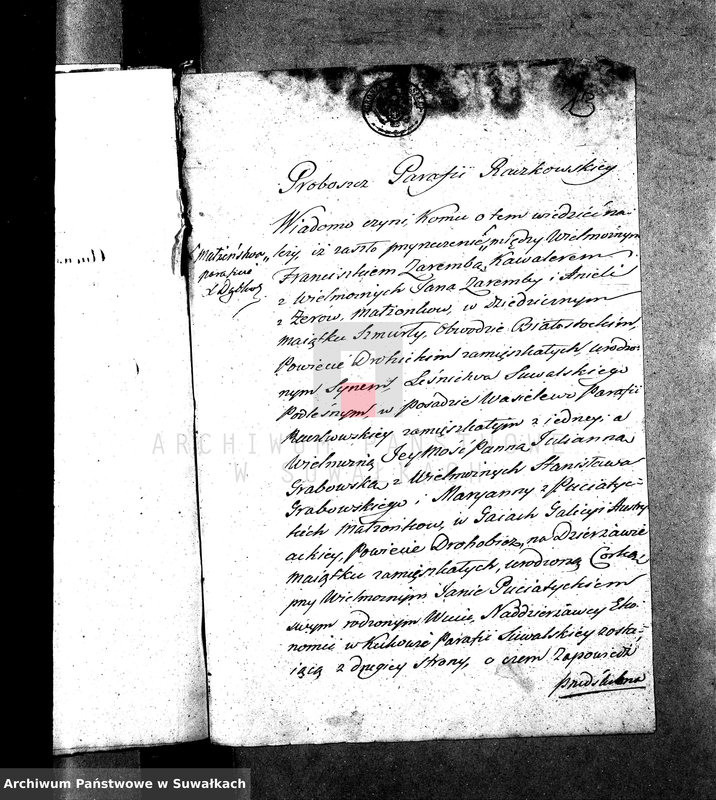 13
Proboszcz Parafii Raczkowskiey
Wiadomo czyni, Komu o tem wiedzieć na-
leży, iż zaszło przyrzeczenie między Wielmożnym
Franciszkiem Zarembą Kawalerem
z Wielmożnych Jana Zaremby i Anieli
z Zerow, Małżonkow, w dziedzicznym
maiątku Szmurły, Obwodzie Białostockim,
Powiecie Drohickim zamięszkałych, urodzo-
nym Synem Leśnictwa Suwalskiego
Podleśnym w posadzie Wasilewo Parafii
Raczkowskiey zamięszkałym z iedney; a
Wielmożną Jeymość Panną Julianna
Grabowską z Wielmożnych Stanisława
Grabowskiego i Maryanny z Puciatyc-
kich Małżonkow, w Gaiach Galicyi Austry-
ackiey, Powiecie Drohobicz, na Dzierzawie
maiątku zamięszkałych, urodzoną Córką,
przy Wielmożnym Janie Puciatyckiem
swym rodzonym Wuiu, Naddzierżawcy Eko-
nomii w Kukowie Parafii Suwalskiey zosta-
iącą z drugiey strony, o czem Zapowiedź
przedślubna
Małżeństwo
parafii
ARCHIWUM PAŃSTWOWE
W SUWAŁKACH
Archiwum Państwowe w Suwałkach